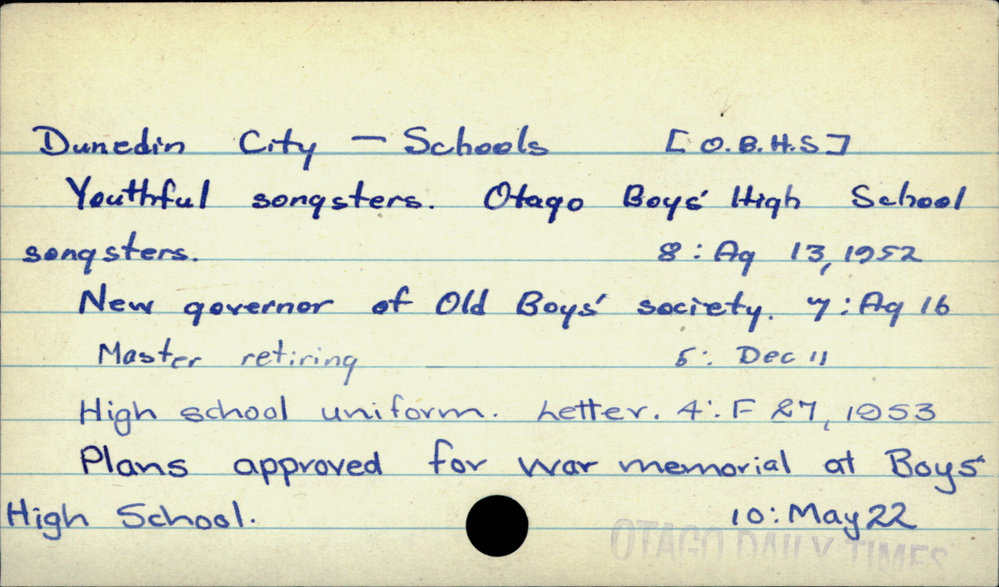 Dunedin City — Schools [O.B.H.S]
Youthful songsters. Otago Boys' High School
songsters. 8: Ag 13, 1952
New governor of Old Boys' society. 7: Ag 16
Master retiring 5: Dec 11
High school uniform. Letter. 4: F 27, 1953
Plans approved for war memorial at Boys'
High School. 10: May 22
OTAGO DAILY TIMES